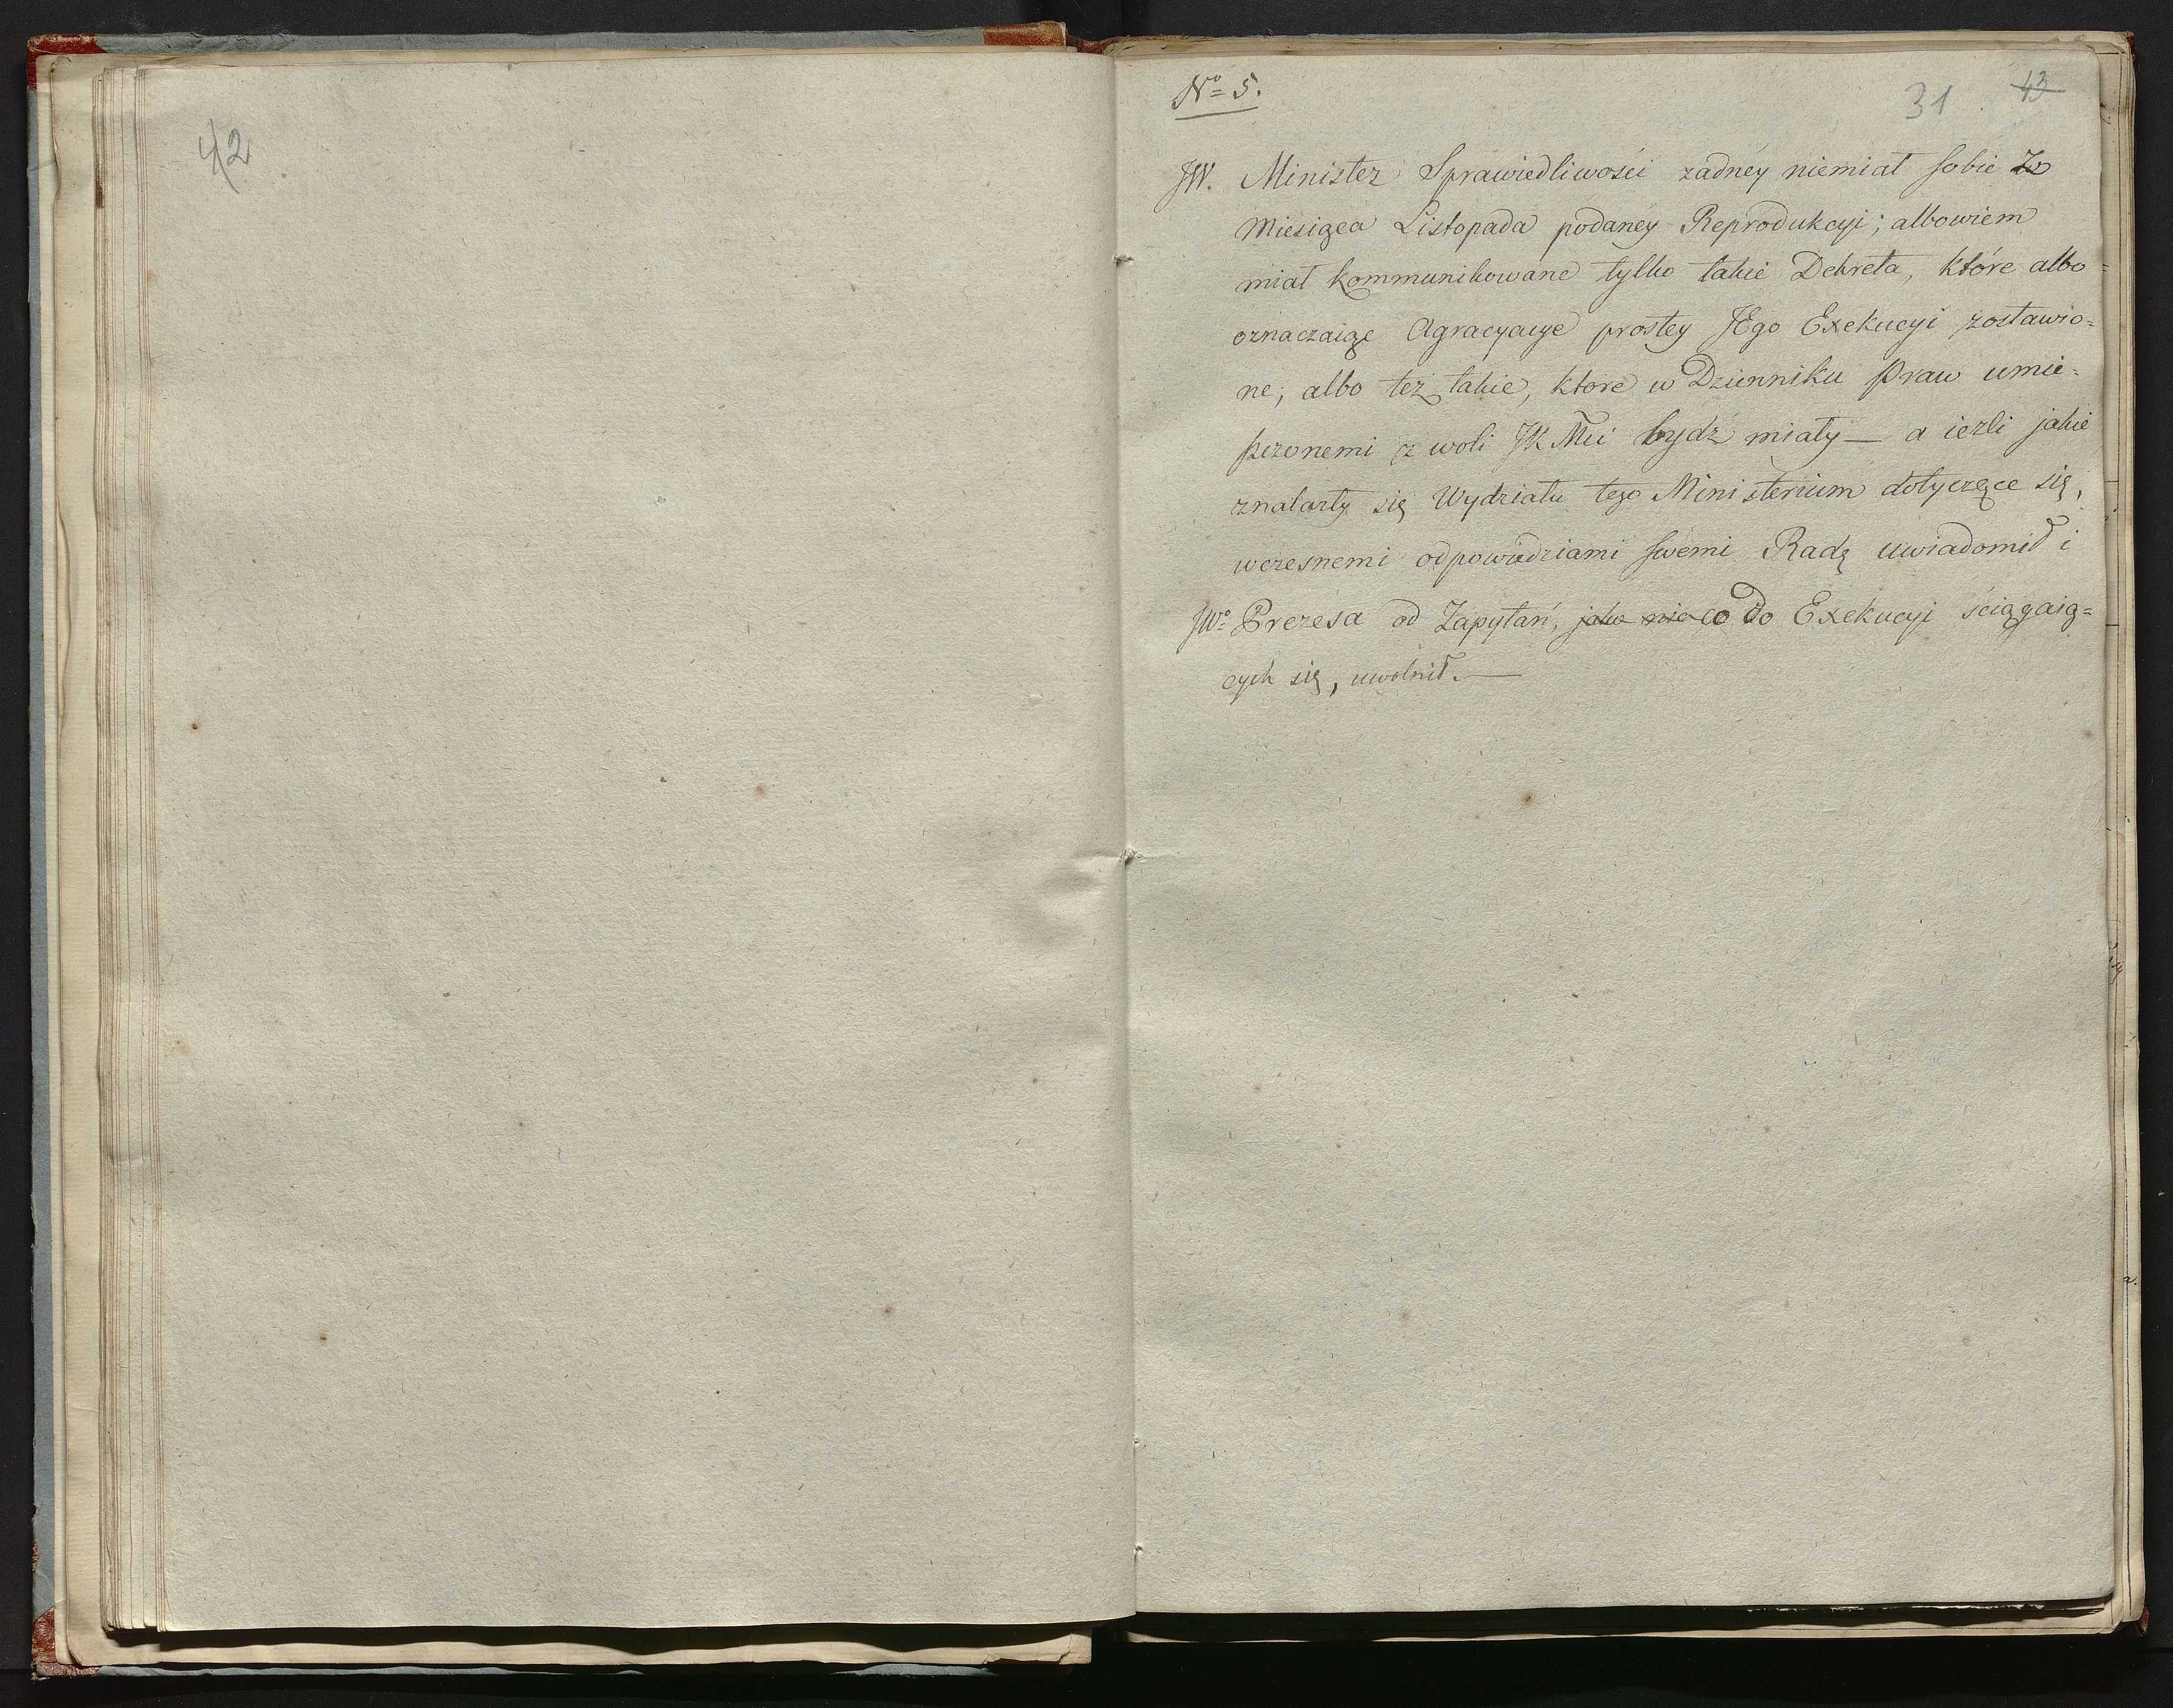 42
Nº 5.
31. 43
JW. Minister Sprawiedliwości zadnéy niemiał sobie Zo
Miesiąca Listopada podanéy Reprodukcyi; albowiem
miał kommunikowane tylko takie Dekreta, które albo
oznaczaiąc Agracyacye prostey JEgo Exekucyi zostawio=
ne, albo też takie, ktore w Dzienniku Praw umie=
szczonemi z woli JKMci bydź miały — a ieżli jakie
znalazły się Wydziału tego Ministerium dotyczące się,
wczesnemi odpowiedziami swemi Radę uwiadomił i
JWº Prezesa od Zapytań, jako nie co do Exekucyi ściągaią=
cych się, uwolnił. —